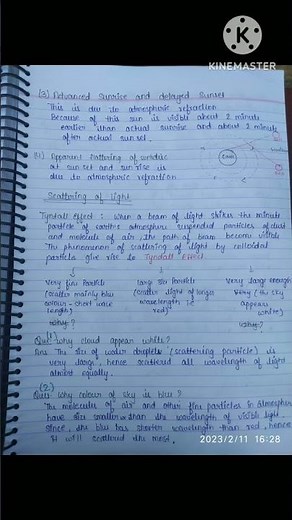 KINEMASTER
(3) Advanced Sunrise and delayed Sunset
This is due to atmospheric refraction
Because of this sun is visible about 2 minute
earlier than actual sunrise and about 2 minute
after actual sunset.
Earth
(4) Apparent flattering of sundisc
at sunset and sunrise is
due to atmospheric refraction
Scattering of light
Tyndall Effect : When a beam of light strikes the minute
particle of earth's atmosphere suspended particles of dust
and molecule of air the path of beam become visible
The phenomenon of scattering of light by colloidal
particle give rise to Tyndall Effect
Very fine Particle
(scatter mainly blue
colour - short wave
length)
Large Size Particles
(scatter light of longer
wavelength i.e
red)
Very large enough
(the sky
appears
white)
why?
why?
(1)
Ques: why cloud appear white?
Ans The size of water droplets (scattering particle) is
very large, hence scattered all wavelength of light
almost equally.
(2.)
Ques: why colour of sky is blue?
The molecules of air and other fine particles in atmosphere
have size smaller than the wavelength of visible light.
Since, the blue has shorter wavelength than red, hence
it will scattered the most.
2023/2/11 16:28